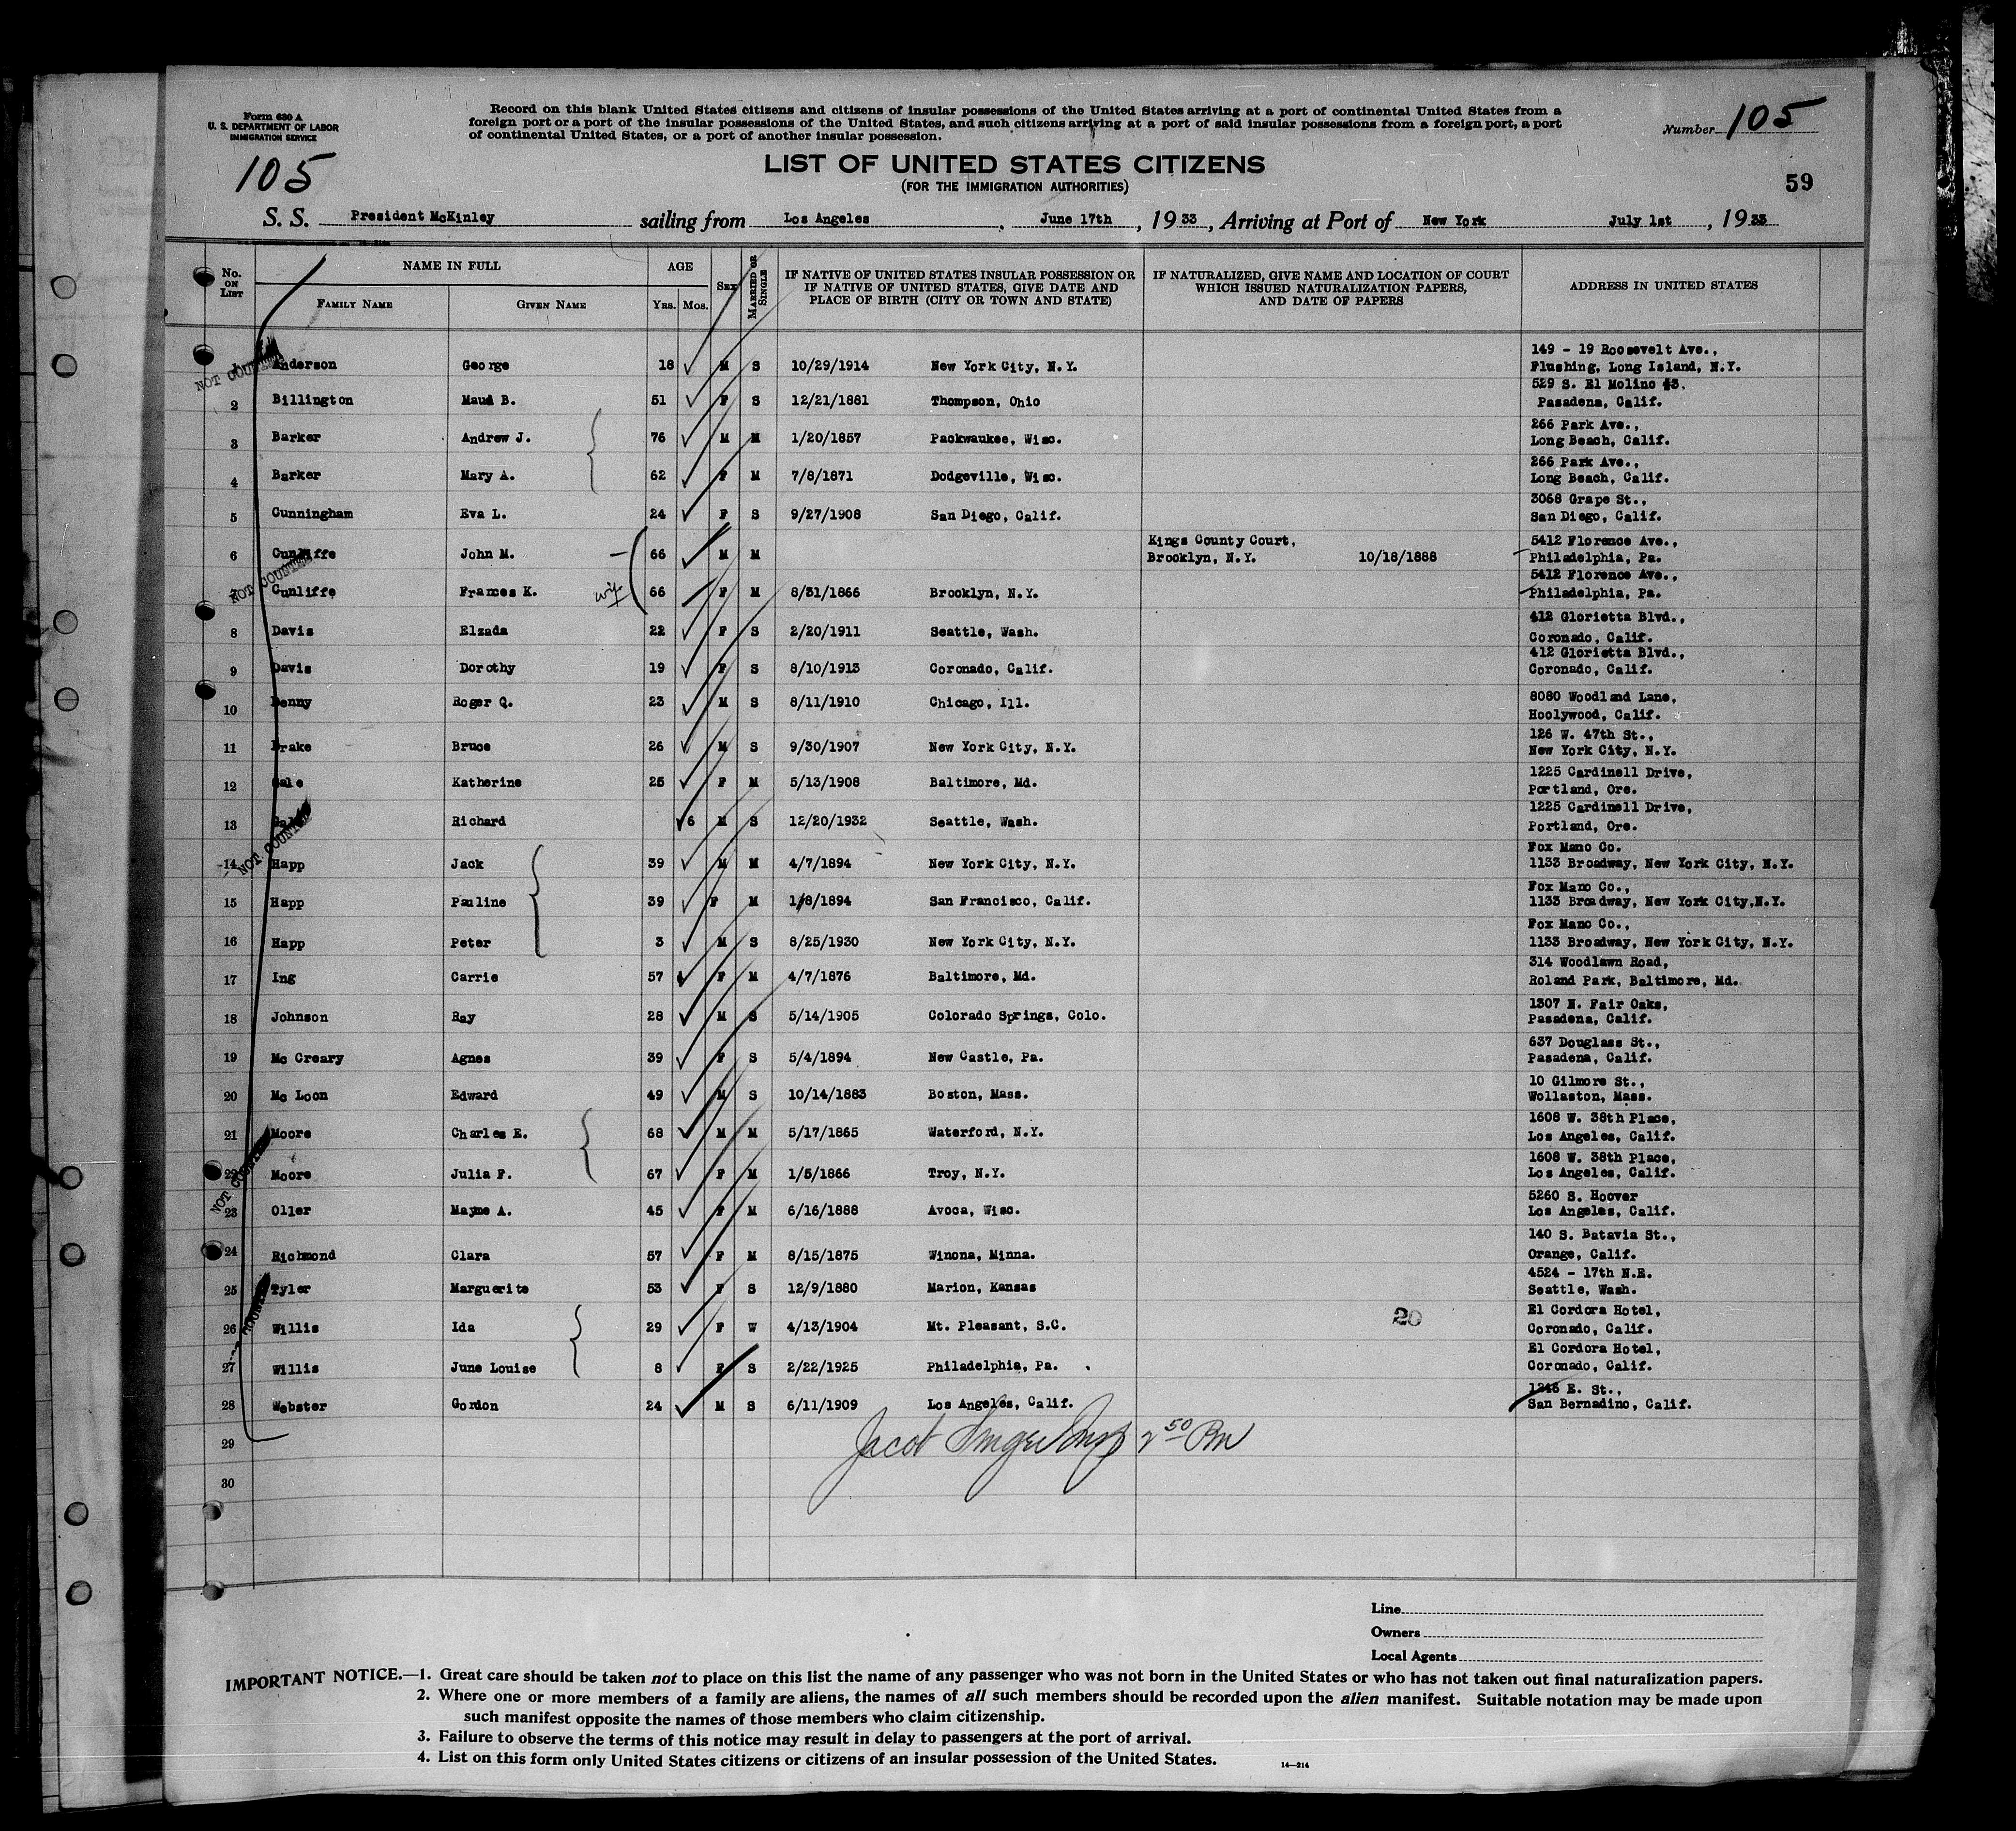 Form 630 A
U. S. DEPARTMENT OF LABOR
IMMIGRATION SERVICE
105
Record on this blank United States citizens and citizens of insular possessions of the United States arriving at a port of continental United States from a
foreign port or a port of the insular possessions of the United States, and such citizens arriving at a port of said insular possessions from a foreign port, a port
of continental United States, or a port of another insular possession.
Number 105
LIST OF UNITED STATES CITIZENS
(FOR THE IMMIGRATION AUTHORITIES)
59
S. S. President McKinley sailing from Los Angeles, June 17th, 1933, Arriving at Port of New York July 1st, 1933
No. ON LIST
NAME IN FULL
FAMILY NAME
GIVEN NAME
AGE
Yrs. Mos.
SEX
MARRIED OR SINGLE
IF NATIVE OF UNITED STATES INSULAR POSSESSION OR
IF NATIVE OF UNITED STATES, GIVE DATE AND
PLACE OF BIRTH (CITY OR TOWN AND STATE)
IF NATURALIZED, GIVE NAME AND LOCATION OF COURT
WHICH ISSUED NATURALIZATION PAPERS,
AND DATE OF PAPERS
ADDRESS IN UNITED STATES
149 - 19 Roosevelt Ave.,
1 Anderson George 18 M S 10/29/1914 New York City, N.Y. Flushing, Long Island, N.Y.
NOT COUNTED
529 S. El Molino #3,
2 Billington Maud B. 51 F S 12/21/1881 Thompson, Ohio Pasadena, Calif.
266 Park Ave.,
3 Barker Andrew J. 76 M M 1/20/1857 Packwaukee, Wisc. Long Beach, Calif.
266 Park Ave.,
4 Barker Mary A. 62 F M 7/8/1871 Dodgeville, Wisc. Long Beach, Calif.
3068 Grape St.,
5 Cunningham Eva L. 24 F S 9/27/1908 San Diego, Calif. San Diego, Calif.
Kings County Court, 5412 Florence Ave.,
6 Cunliffe John M. 66 M M Brooklyn, N.Y. 10/18/1888 Philadelphia, Pa.
NOT COUNTED
5412 Florence Ave.,
7 Cunliffe Frances K. wife 66 F M 8/31/1866 Brooklyn, N.Y. Philadelphia, Pa.
412 Glorietta Blvd.,
8 Davis Elzada 22 F S 2/20/1911 Seattle, Wash. Coronado, Calif.
412 Glorietta Blvd.,
9 Davis Dorothy 19 F S 8/10/1913 Coronado, Calif. Coronado, Calif.
8080 Woodland Lane,
10 Denny Roger Q. 23 M S 8/11/1910 Chicago, Ill. Hoolywood, Calif.
126 W. 47th St.,
11 Drake Bruce 26 M S 9/30/1907 New York City, N.Y. New York City, N.Y.
1225 Cardinell Drive,
12 Gale Katherine 25 F M 5/13/1908 Baltimore, Md. Portland, Ore.
1225 Cardinell Drive,
13 Gale Richard 6 M S 12/20/1932 Seattle, Wash. Portland, Ore.
NOT COUNTED
Fox Mano Co.
14 Happ Jack 39 M M 4/7/1894 New York City, N.Y. 1133 Broadway, New York City, N.Y.
Fox Mano Co.,
15 Happ Pauline 39 F M 1/8/1894 San Francisco, Calif. 1133 Broadway, New York City,N.Y.
Fox Mano Co.,
16 Happ Peter 3 M S 8/25/1930 New York City, N.Y. 1133 Broadway, New York City, N.Y.
314 Woodlawn Road,
17 Ing Carrie 57 F M 4/7/1876 Baltimore, Md. Roland Park, Baltimore, Md.
1307 N. Fair Oaks,
18 Johnson Ray 28 M S 5/14/1905 Colorado Springs, Colo. Pasadena, Calif.
637 Douglass St.,
19 Mc Creary Agnes 39 F S 5/4/1894 New Castle, Pa. Pasadena, Calif.
10 Gilmore St.,
20 Mc Loon Edward 49 M S 10/14/1883 Boston, Mass. Wollaston, Mass.
1608 W. 38th Place,
21 Moore Charles E. 68 M M 5/17/1865 Waterford, N.Y. Los Angeles, Calif.
1608 W. 38th Place,
22 Moore Julia F. 67 F M 1/5/1866 Troy, N.Y. Los Angeles, Calif.
NOT COUNTED
5260 S. Hoover
23 Oller Mayme A. 45 F M 6/16/1888 Avoca, Wisc. Los Angeles, Calif.
140 S. Batavia St.,
24 Richmond Clara 57 F M 8/15/1875 Winona, Minna. Orange, Calif.
4524 - 17th N.E.
25 Tyler Marguerite 53 F S 12/9/1880 Marion, Kansas Seattle, Wash.
20 El Cordora Hotel,
26 Willis Ida 29 F W 4/13/1904 Mt. Pleasant, S.C. Coronado, Calif.
COUNTED
El Cordora Hotel,
27 Willis June Louise 8 F S 2/22/1925 Philadelphia, Pa. Coronado, Calif.
1246 E. St.,
28 Webster Gordon 24 M S 6/11/1909 Los Angeles, Calif. San Bernadino, Calif.
29 Jacob 2 50 Pm
30
Line
Owners
Local Agents
IMPORTANT NOTICE.—1. Great care should be taken not to place on this list the name of any passenger who was not born in the United States or who has not taken out final naturalization papers.
2. Where one or more members of a family are aliens, the names of all such members should be recorded upon the alien manifest. Suitable notation may be made upon
such manifest opposite the names of those members who claim citizenship.
3. Failure to observe the terms of this notice may result in delay to passengers at the port of arrival.
4. List on this form only United States citizens or citizens of an insular possession of the United States.
14—214